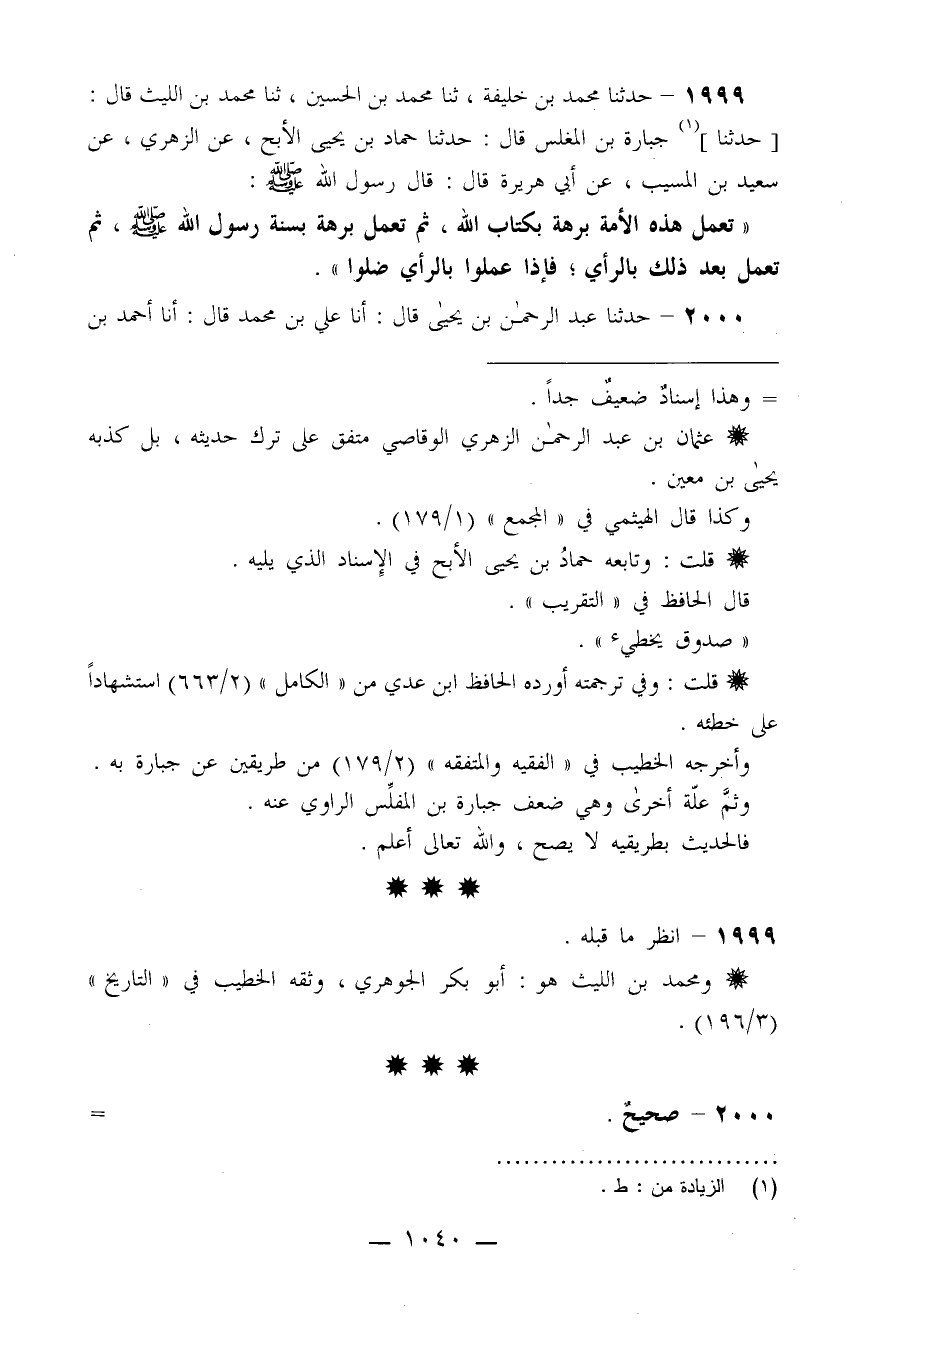 ١٩٩٩ – حدثنا محمد بن خليفة ، ثنا محمد بن الحسين ، ثنا محمد بن الليث قال :
[ حدثنا ](١) جبارة بن المغلس قال : حدثنا حماد بن يحيى الأبح ، عن الزهري ، عن
سعيد بن المسيب ، عن أبي هريرة قال : قال رسول الله ﷺ :
« تعمل هذه الأمة برهة بكتاب الله ، ثم تعمل برهة بسنة رسول الله ﷺ ، ثم
تعمل بعد ذلك بالرأي ؛ فإذا عملوا بالرأي ضلوا » .
٢٠٠٠ – حدثنا عبد الرحمٰن بن يحيىٰ قال : أنا علي بن محمد قال : أنا أحمد بن
= وهذا إسنادٌ ضعيفٌ جداً .
✹ عثمان بن عبد الرحمٰن الزهري الوقاصي متفق على ترك حديثه ، بل كذبه
يحيىٰ بن معين .
وكذا قال الهيثمي في « المجمع » (١/١٧٩) .
✹ قلت : وتابعه حمادُ بن يحيى الأبح في الإِسناد الذي يليه .
قال الحافظ في « التقريب » .
« صدوق يخطيء » .
✹ قلت : وفي ترجمته أورده الحافظ ابن عدي من « الكامل » (٢/٦٦٣) استشهاداً
على خطئه .
وأخرجه الخطيب في « الفقيه والمتفقه » (٢/١٧٩) من طريقين عن جبارة به .
وثمَّ علّة أخرىٰ وهي ضعف جبارة بن المفلِّس الراوي عنه .
فالحديث بطريقيه لا يصح ، والله تعالى أعلم .
✹ ✹ ✹
١٩٩٩ – انظر ما قبله .
✹ ومحمد بن الليث هو : أبو بكر الجوهري ، وثقه الخطيب في « التاريخ »
(٣/١٩٦) .
✹ ✹ ✹
٢٠٠٠ – صحيحٌ . =
(١) الزيادة من : ط .
— ١٠٤٠ —